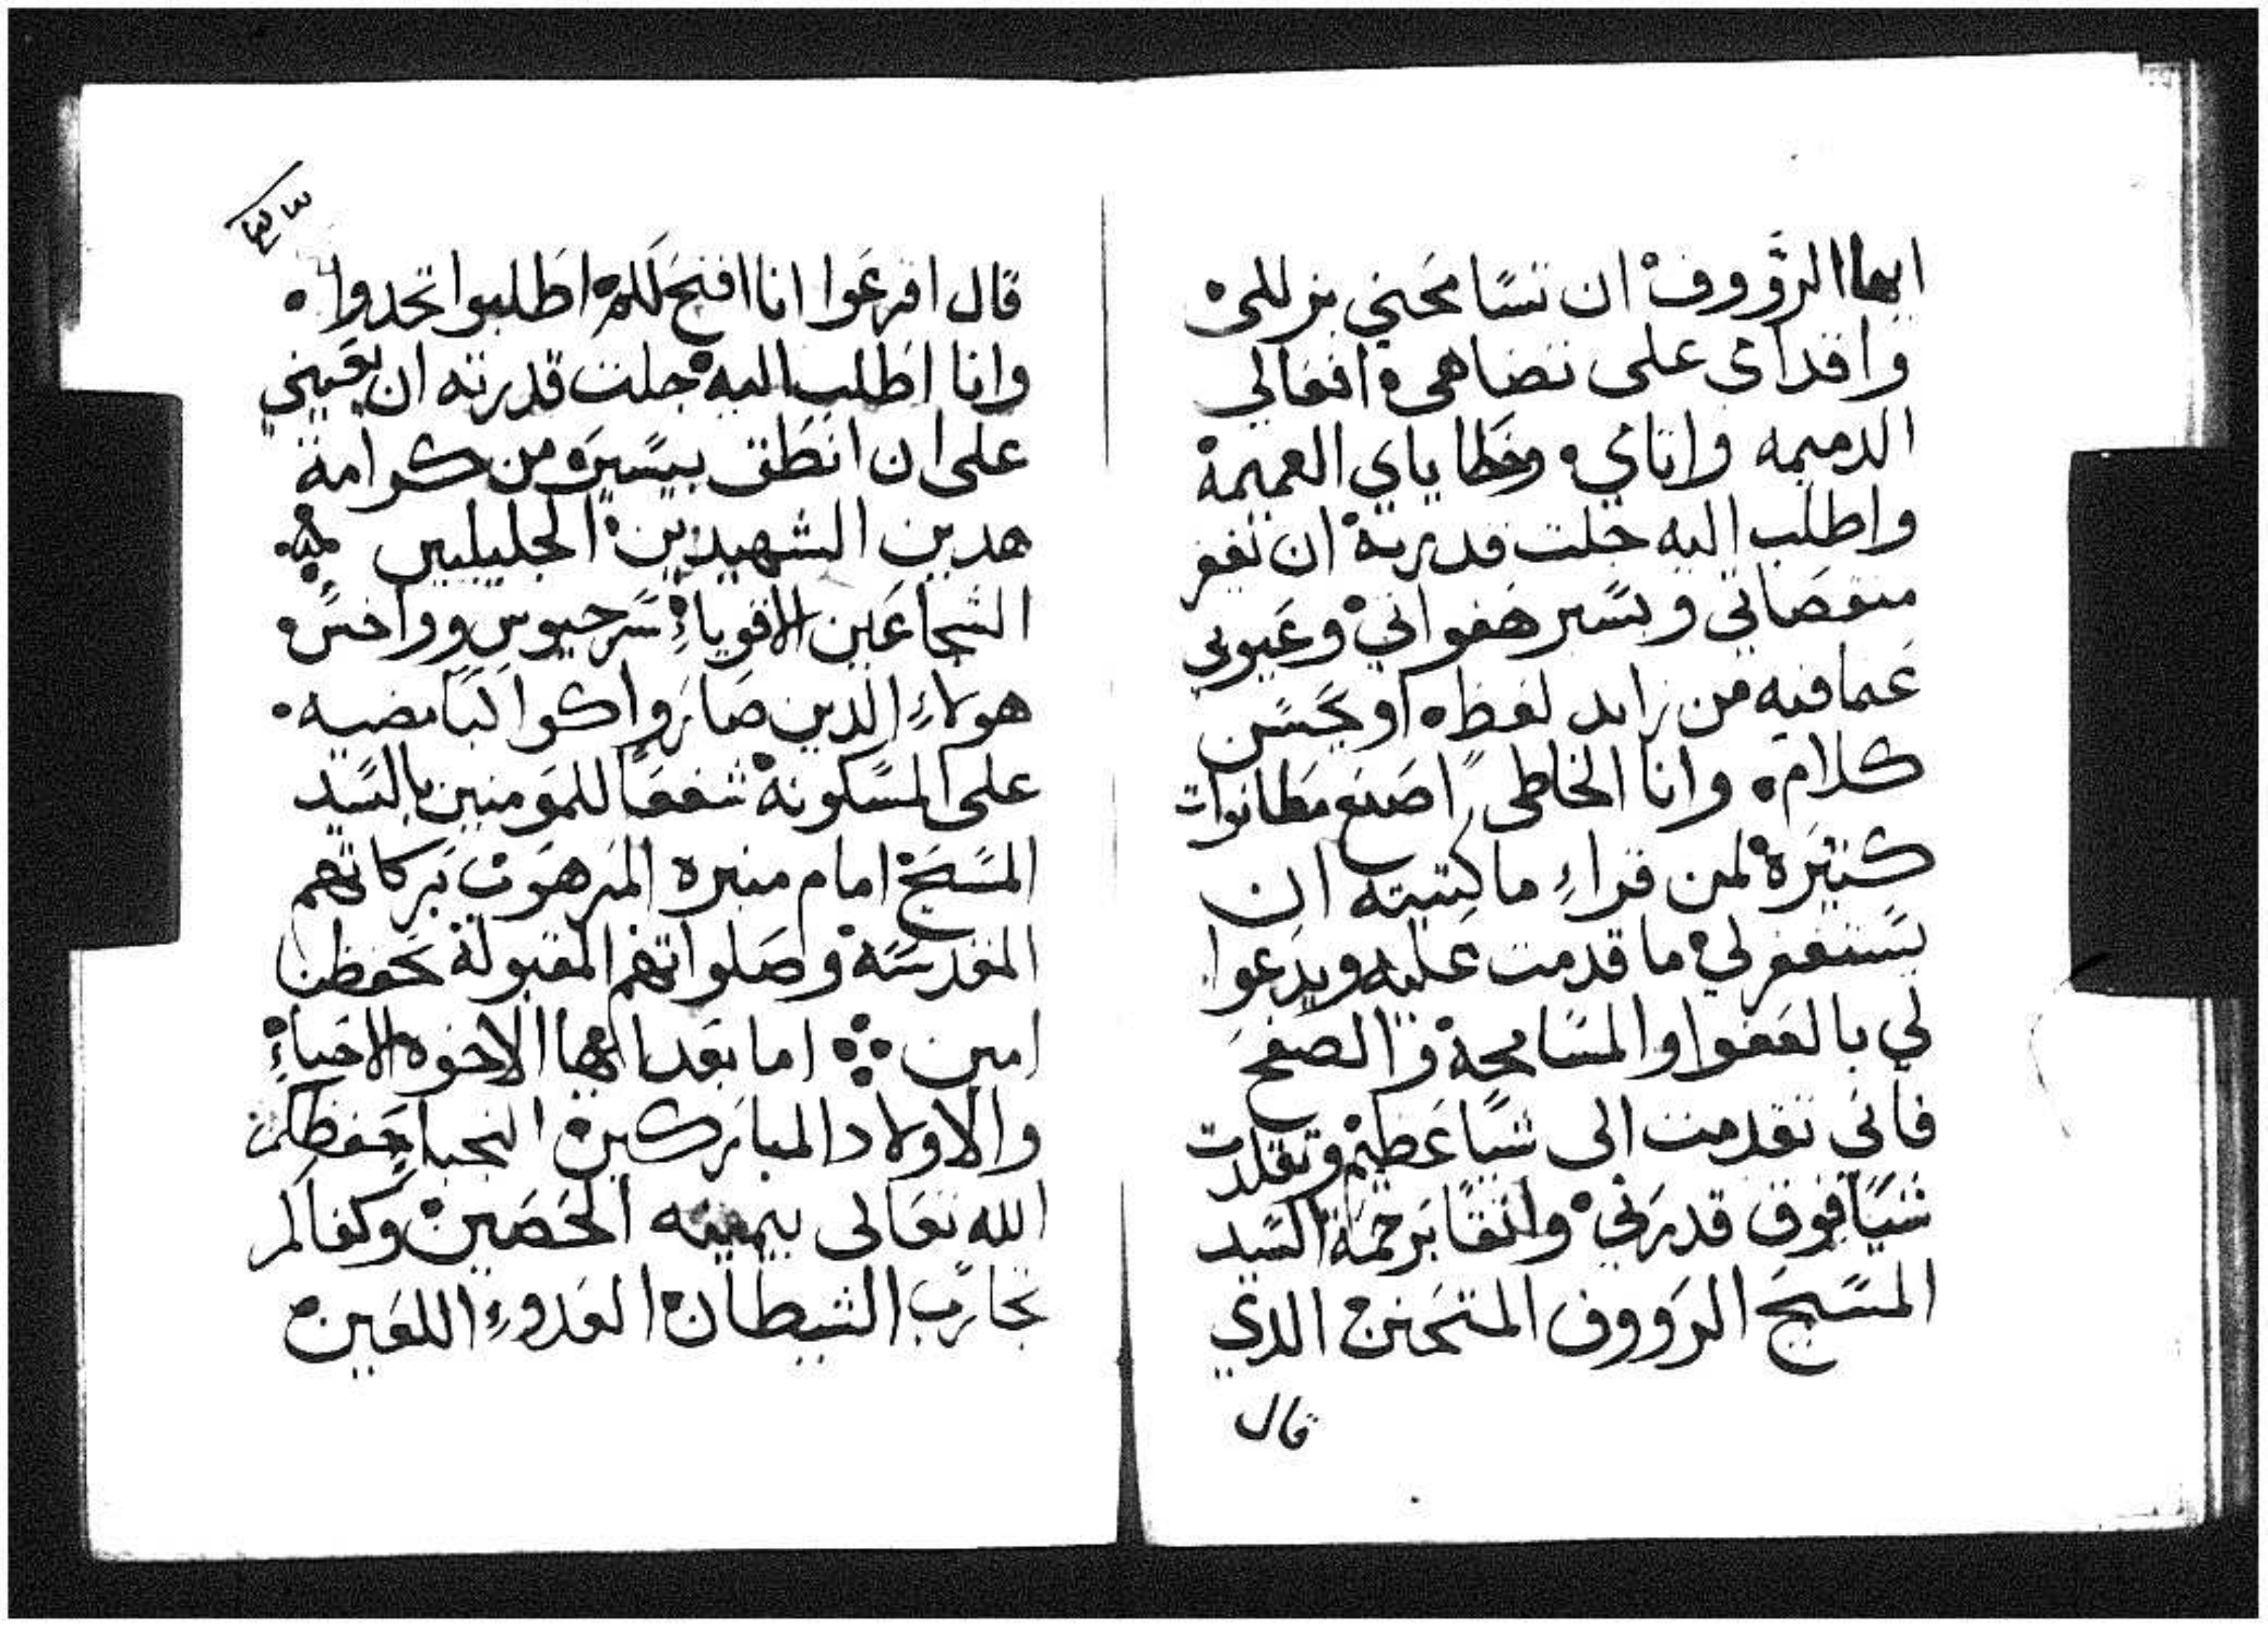 ايها الرؤوف ان تسامحني بزللي
واقدامي على تضاهي وافعالي
الدميمه واتامي وخطاياي العميمة
واطلب اليه جلت قدرته ان يغفر
منقصاتي ويستر هفواتي وعيوبي
عما فيه من زايد لفظه او بحسن
كلام وانا الخاطي اصنع مطانوات
كثيرة لمن قراء ما كتبته ان
يستغفر لي ما قدمت عليه ويدعوا
لي بالعفوا والمسامحة والصفح
فاني تقدمت الى شيا عظيم وتقلدت
شيا فوق قدرتي واتقا برحمة السيد
المسيح الرووف المتحنن الدي
قال
٣٣
قال اقرعوا انا افتح لكم اطلبوا تجدوا
وانا اطلب اليه جلت قدرته ان يعينني
على ان انطق بيسير من كرامة
هدين الشهيدين الجليلين
الشجاعين الاقوياء سرجيوس وواخس
هولاء الدين صاروا كواكبا مضيه
على المسكونة شفعا للمومنين بالسيد
المسيح امام منبره المرهوب بركاتهم
المقدسة وصلواتهم المقبولة تحفظنا
امين اما بعد ايها الاخوه الاحباء
والاولاد المباركين النجبا حفظكم
الله تعالى بيمينه الحصين وكفاكم
تجارب الشيطان العدوء اللعين